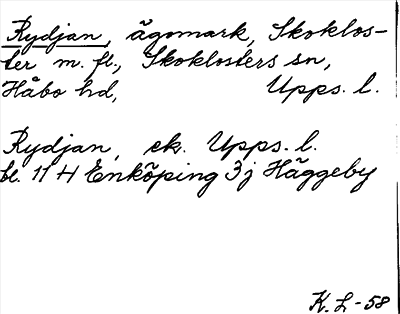 Rydjan, ägomark, Skoklos-
ter m. fl., Skoklosters sn,
Håbo hd, Upps. l.
Rydjan, ek. Upps. l.
bl. 11 H Enköping 3 j Häggeby
K. L - 58